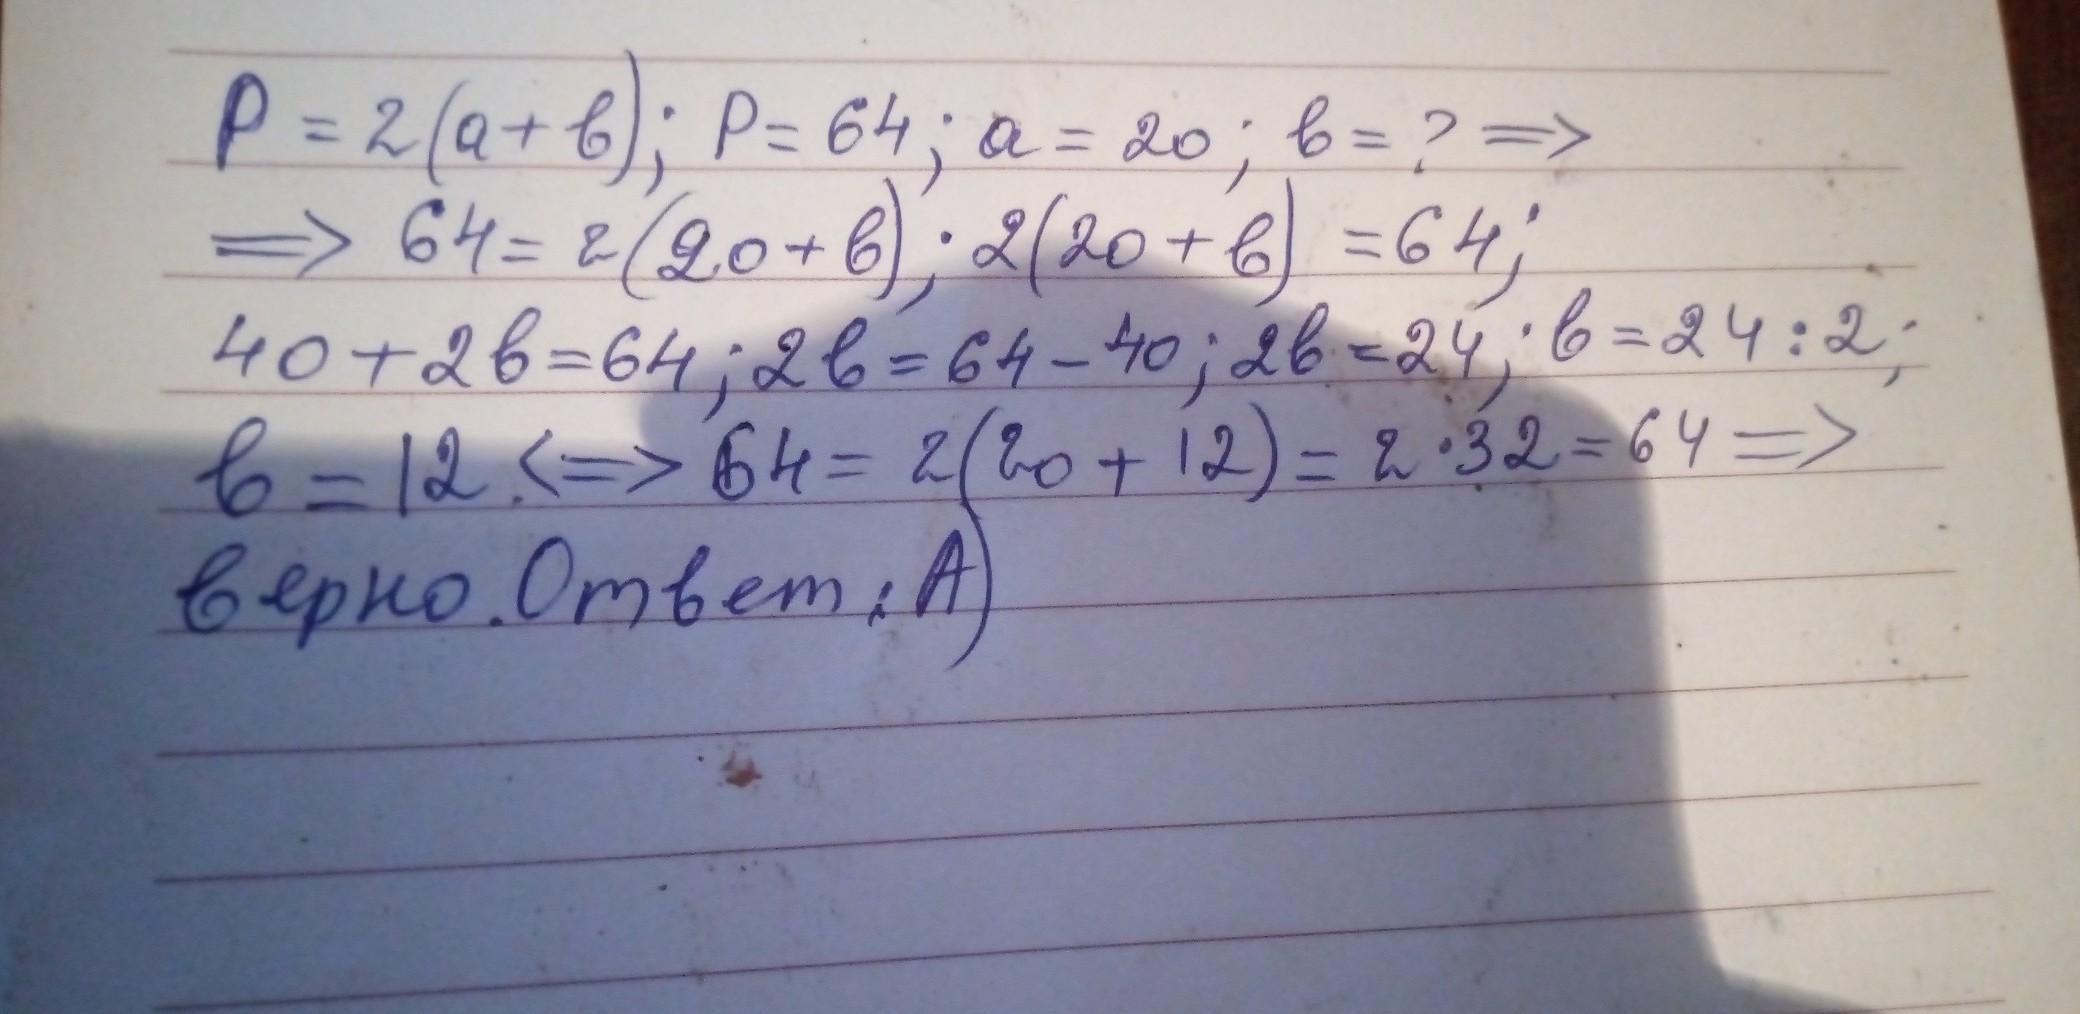 P = 2(a + в); P = 64; a = 20; в = ? =>
=> 64 = 2(20 + в); 2(20 + в) = 64;
40 + 2в = 64; 2в = 64 - 40; 2в = 24; в = 24 : 2;
в = 12. <=> 64 = 2(20 + 12) = 2 · 32 = 64 =>
верно. Ответ: А)